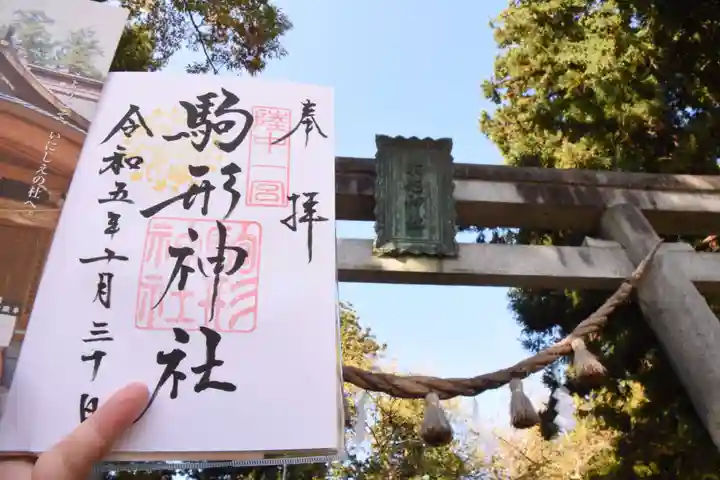 奉拝
陸中一宮
駒形神社
駒形神社
令和五年十月三十日
いにしえの杜へ